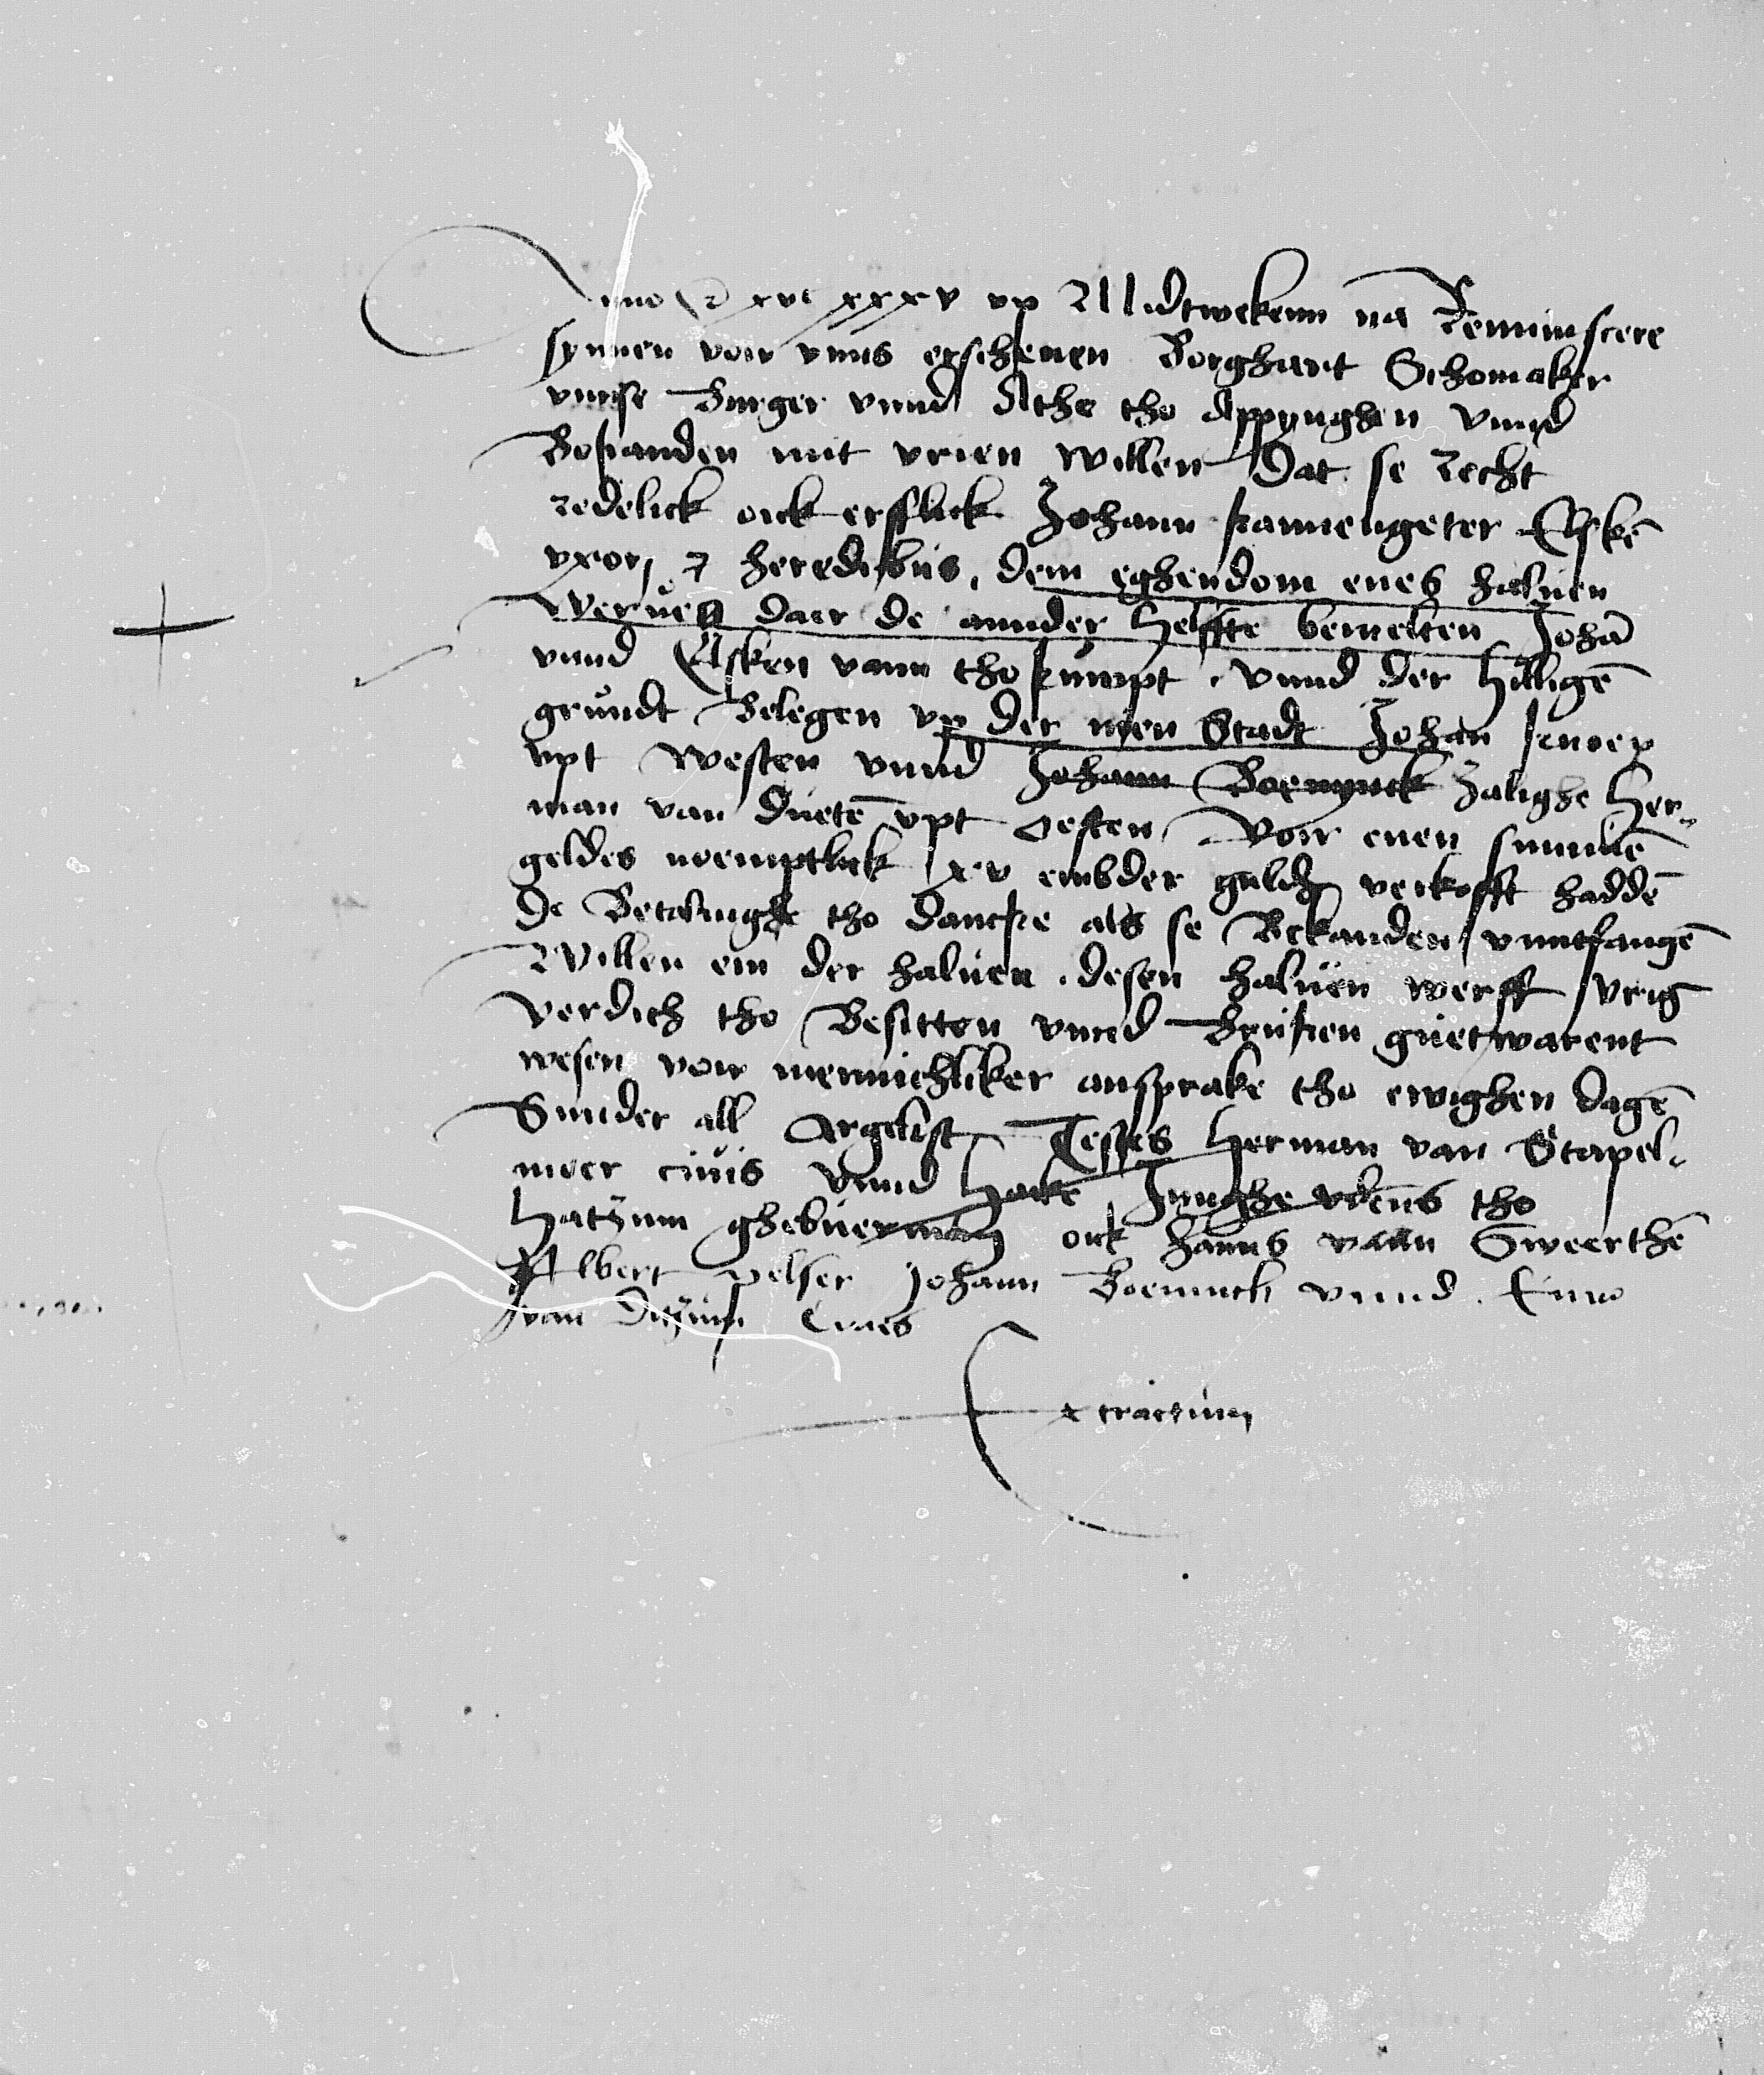 Anno xvc xxxv vp Midtwekenn na Reminiscere
synnen vor vnns erschenen Borghart Schomaker
vnnse Burger vnnd Athe tho Appynghen vnnd
Bekanden mit vrien willen Dat se recht
redelick ock erfflick Johann kannengeter Elskē
vxori & heredibus, dem eghendom enes haluen
werues daer de annder helffte bemelten Johā
vnnd Elsken vann tho kumpt . vnnd der hilligē
grundt Belegen vp der nien Stadt Johan knoep
vpt westen vnnd Johann Boenynck zalighe Her-
man van duetē vpt oesten, vor enen summē
geldes noemptlick xv embder guld verkofft haddē
De Betalinghe tho dancke als se Bekanden vnntfangē
Willen em der haluen . desen haluen werff vrig
verdich tho Besitten vnnd Bruken guet warent
wesen vor mennichliker ansprake tho ewighen dagē
Sunder all Argelist Testes Herman van Stapel-
moer ciuis vnnd Haike Junghe vdens tho
Hatzum ghebuerman ock hanns vann Sweerthē
Albert pelser Johann Boeninck vnnd . Enno
van Ditzum Ciues
Extractum